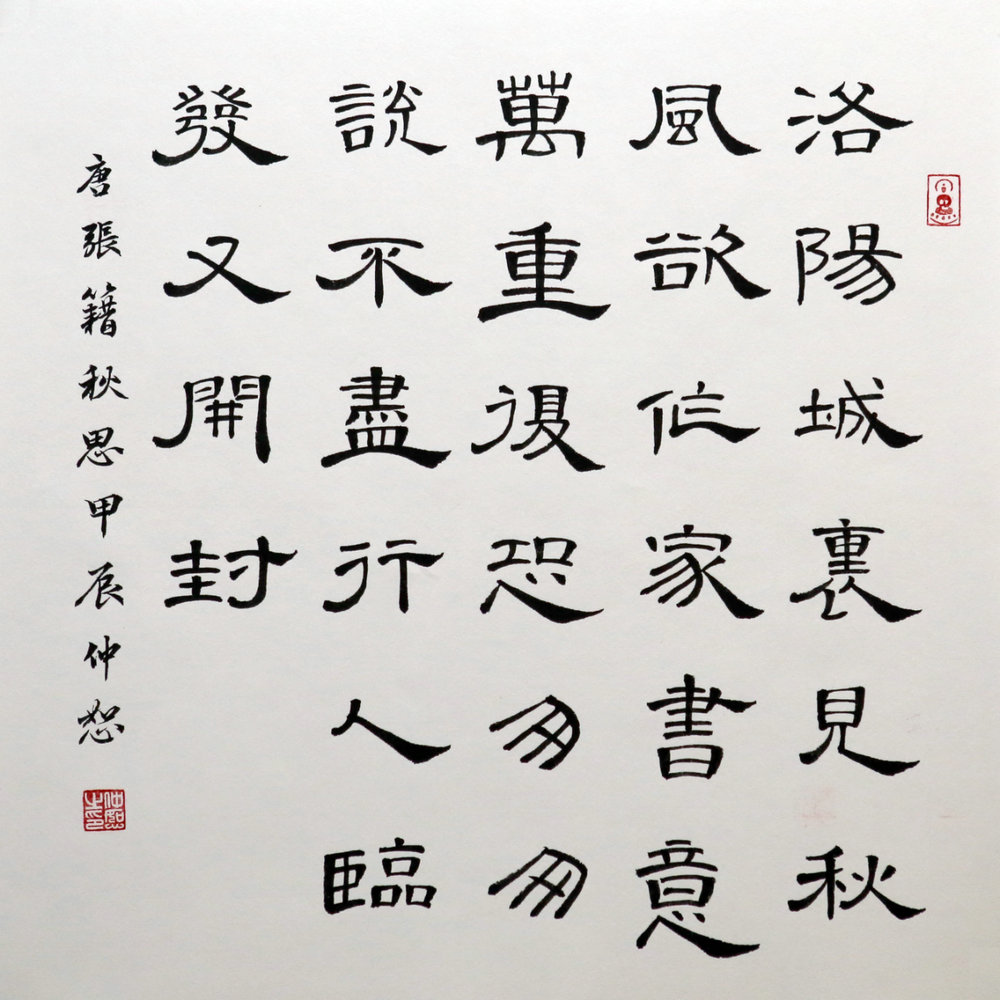 洛陽城裏見秋
風欲作家書意
萬重復恐匆匆
說不盡行人臨
發又開封
唐張籍秋思甲辰仲恕